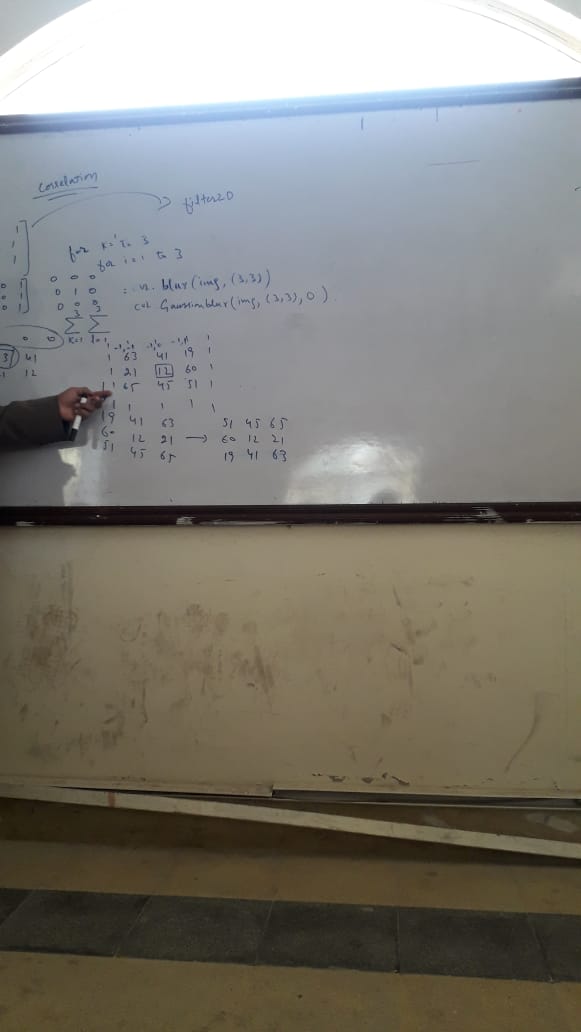 Correlation
filter2D
for k=1 to 3
for i=1 to 3
0 0 0
0 1 0
0 0 0
= cv2. blur(img, (3,3))
cv2 Gaussianblur(img, (3,3), 0)
3 3
Σ Σ
k=1 l=1
0 0
3 41
12
-1,-1 -1,0 -1,1
1 63 41 19 1
1 21 12 60 1
1 65 45 51 1
1 1 1 1 1
19 41 63
60 12 21 →
51 45 65
51 45 65
60 12 21
19 41 63